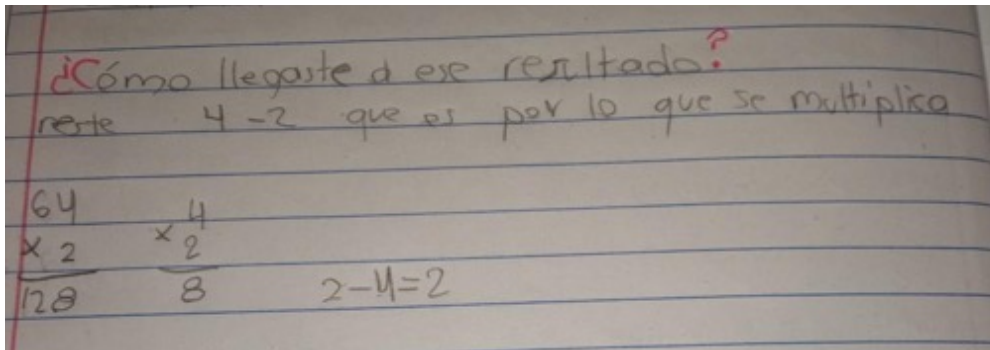 ¿Cómo llegaste a ese resultado?
reste 4-2 que es por lo que se multiplica
64
x 2
128
4
x 2
8
2-4=2